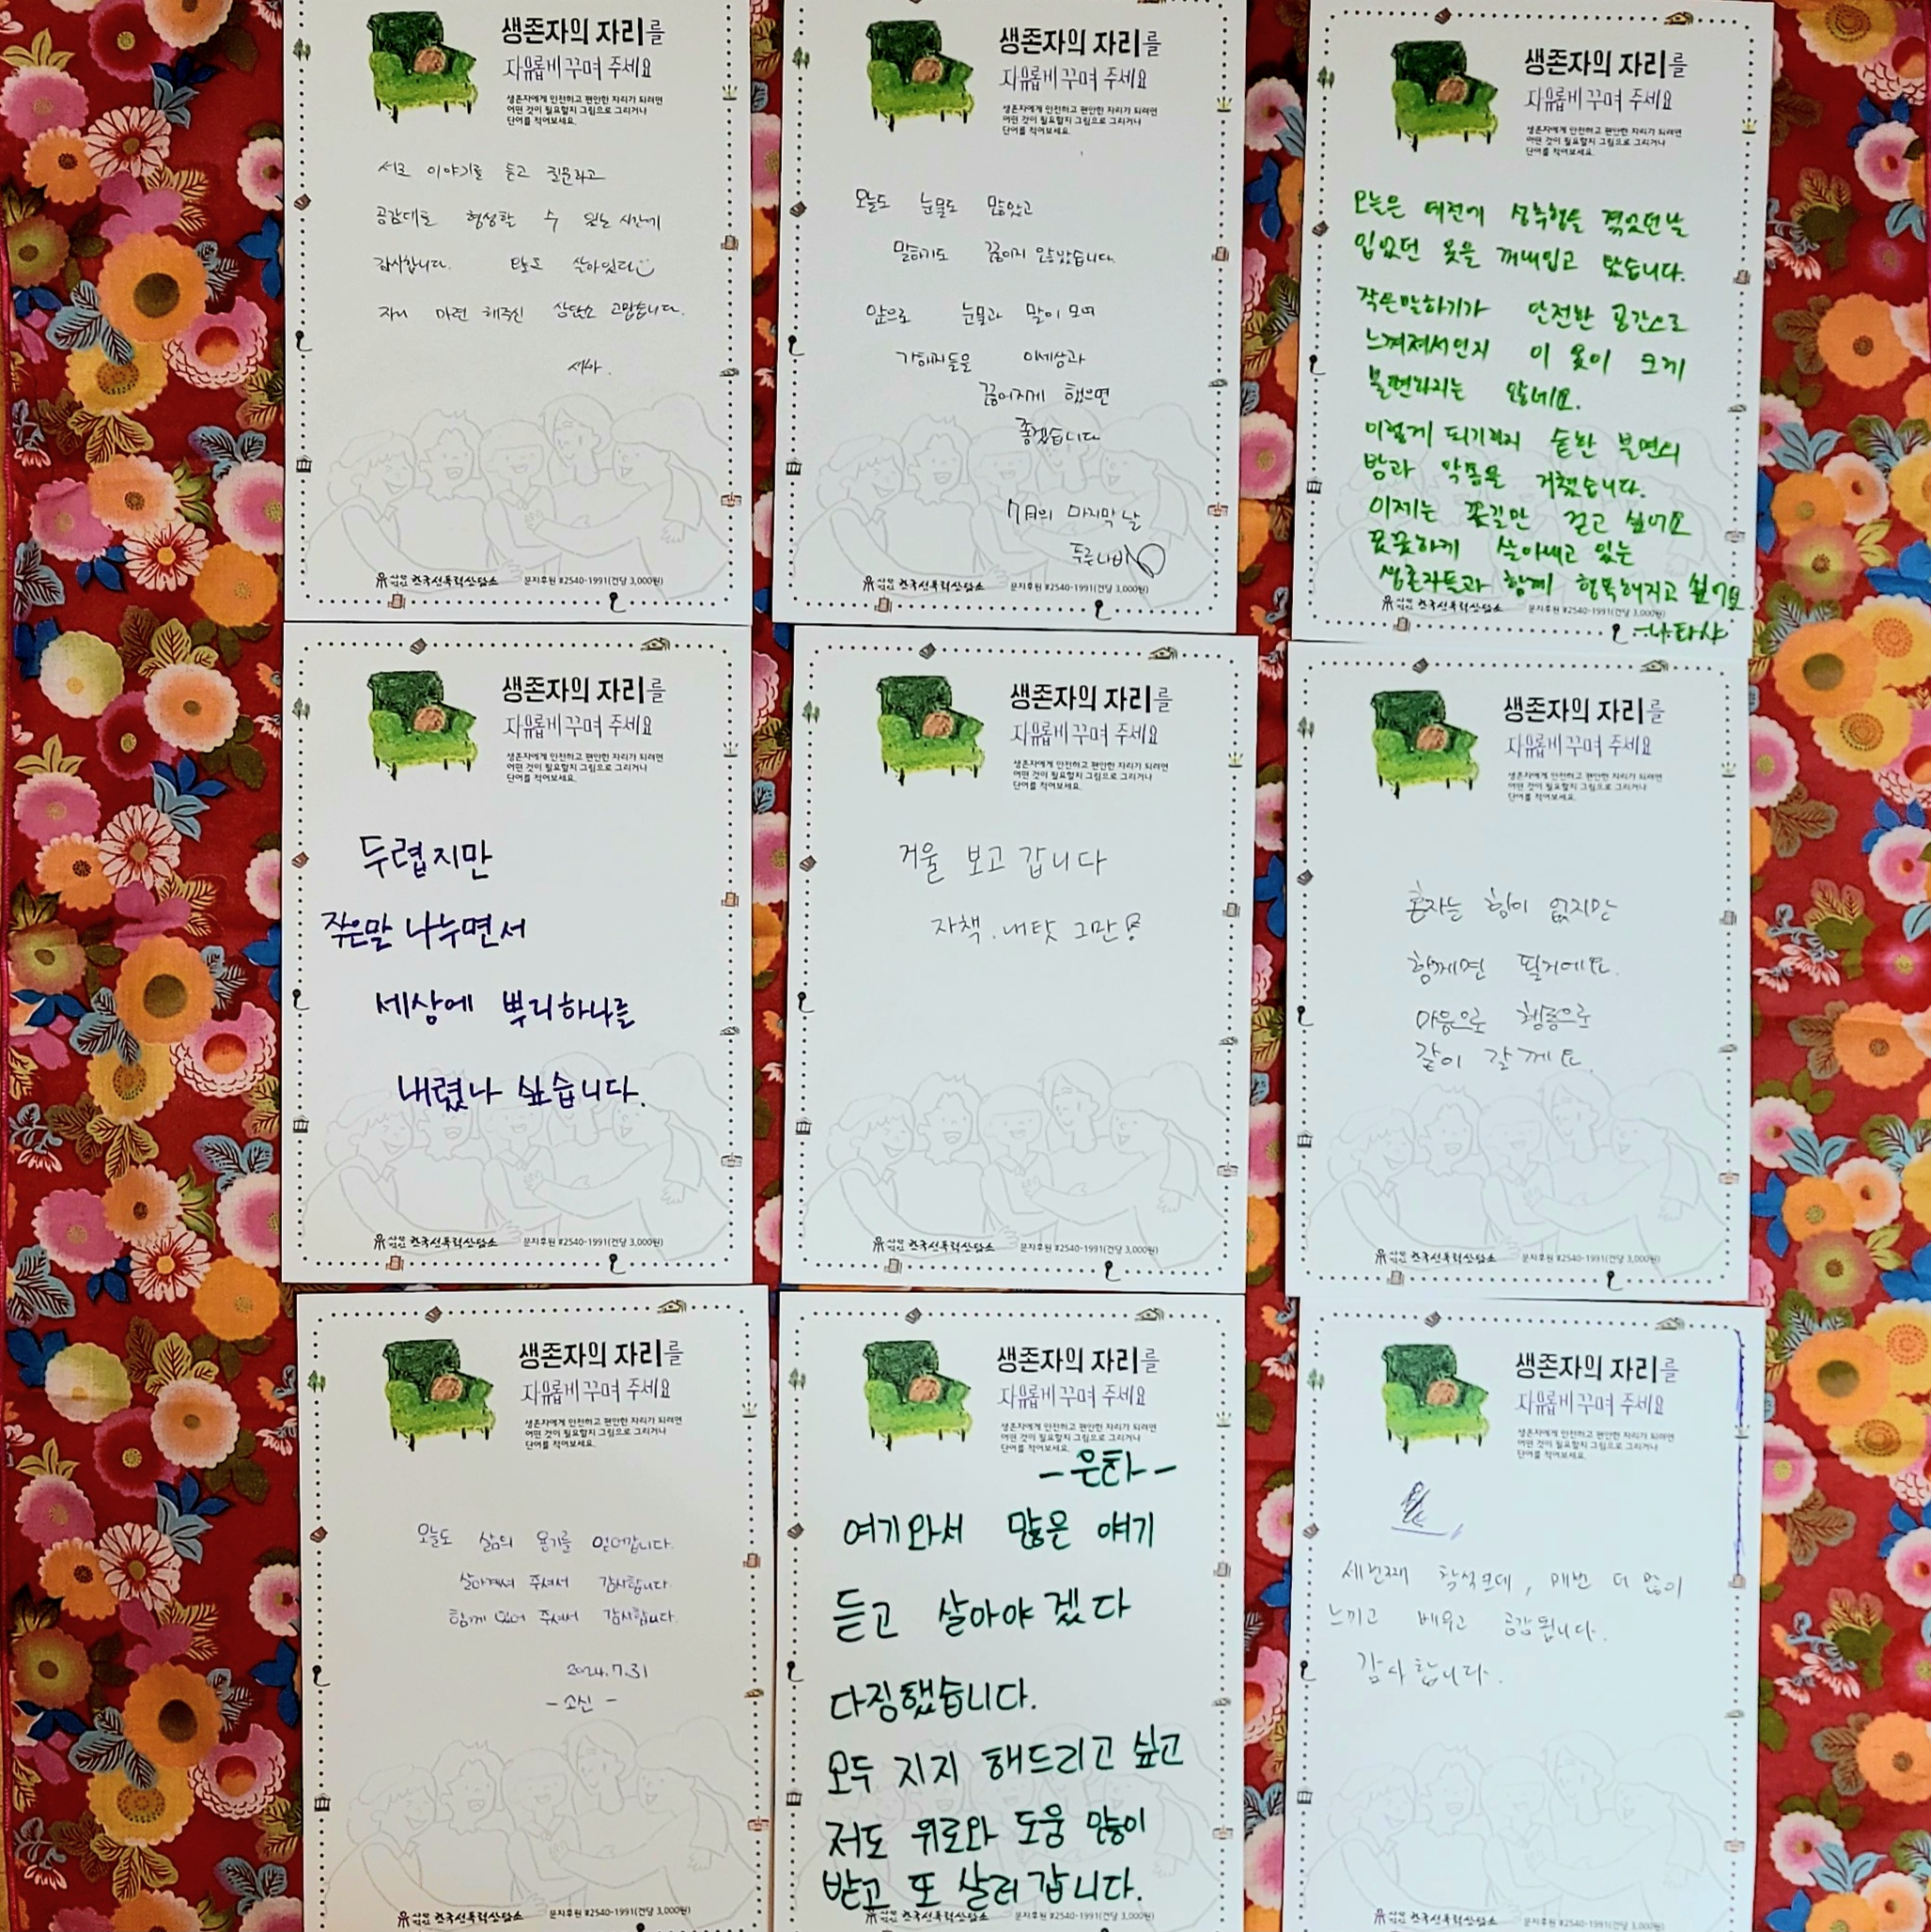 생존자의 자리를
자유롭게 꾸며 주세요
생존자에게 안전하고 편안한 자리가 되려면
어떤 것이 필요할지 그림으로 그리거나
단어를 적어보세요.
서로 이야기를 듣고 질문하고
공감대를 형성할 수 있는 시간에
감사합니다. 살아있다
자리 마련 해주신 상담소 고맙습니다.
세아.
한국성폭력상담소 문자후원 #2540-1991(건당 3,000원)
생존자의 자리를
자유롭게 꾸며 주세요
생존자에게 안전하고 편안한 자리가 되려면
어떤 것이 필요할지 그림으로 그리거나
단어를 적어보세요.
오늘도 눈물도 많았고
말하기도 끊이지 않았습니다.
앞으로 눈물과 말이 모여
가해자들을 이세상과
끊어지게 했으면
좋겠습니다
7月의 마지막 날
푸른나비
한국성폭력상담소 문자후원 #2540-1991(건당 3,000원)
생존자의 자리를
자유롭게 꾸며 주세요
생존자에게 안전하고 편안한 자리가 되려면
어떤 것이 필요할지 그림으로 그리거나
단어를 적어보세요.
오늘은 예전에 성추행을 겪었던 날
입었던 옷을 꺼내입고 왔습니다.
작은말하기가 안전한 공간으로
느껴져서인지 이 옷이 크게
불편하지는 않네요.
이렇게 되기까지 숱한 불면의
밤과 악몽을 거쳤습니다.
이제는 꽃길만 걷고 싶어요
꿋꿋하게 살아내고 있는
생존자들과 함께 행복해지고 싶어요.
-나타샤
한국성폭력상담소 문자후원 #2540-1991(건당 3,000원)
생존자의 자리를
자유롭게 꾸며 주세요
생존자에게 안전하고 편안한 자리가 되려면
어떤 것이 필요할지 그림으로 그리거나
단어를 적어보세요.
두렵지만
작은말 나누면서
세상에 뿌리하나를
내렸나 싶습니다.
한국성폭력상담소 문자후원 #2540-1991(건당 3,000원)
생존자의 자리를
자유롭게 꾸며 주세요
생존자에게 안전하고 편안한 자리가 되려면
어떤 것이 필요할지 그림으로 그리거나
단어를 적어보세요.
거울 보고 갑니다
자책. 내탓 그만
한국성폭력상담소 문자후원 #2540-1991(건당 3,000원)
생존자의 자리를
자유롭게 꾸며 주세요
생존자에게 안전하고 편안한 자리가 되려면
어떤 것이 필요할지 그림으로 그리거나
단어를 적어보세요.
혼자는 힘이 없지만
함께면 될거에요.
마음으로 행동으로
같이 갈께요.
한국성폭력상담소 문자후원 #2540-1991(건당 3,000원)
생존자의 자리를
자유롭게 꾸며 주세요
생존자에게 안전하고 편안한 자리가 되려면
어떤 것이 필요할지 그림으로 그리거나
단어를 적어보세요.
오늘도 삶의 용기를 얻어갑니다.
살아계셔 주셔서 감사합니다.
함께 있어 주셔서 감사합니다.
2024.7.31
-소신-
한국성폭력상담소 문자후원 #2540-1991(건당 3,000원)
생존자의 자리를
자유롭게 꾸며 주세요
생존자에게 안전하고 편안한 자리가 되려면
어떤 것이 필요할지 그림으로 그리거나
단어를 적어보세요.
-은하-
여기와서 많은 얘기
듣고 살아야겠다
다짐했습니다.
모두 지지 해드리고 싶고
저도 위로와 도움 많이
받고 또 살러 갑니다.
한국성폭력상담소 문자후원 #2540-1991(건당 3,000원)
생존자의 자리를
자유롭게 꾸며 주세요
생존자에게 안전하고 편안한 자리가 되려면
어떤 것이 필요할지 그림으로 그리거나
단어를 적어보세요.
세번째 참석인데, 매번 더 많이
느끼고 배우고 공감됩니다.
감사합니다.
한국성폭력상담소 문자후원 #2540-1991(건당 3,000원)